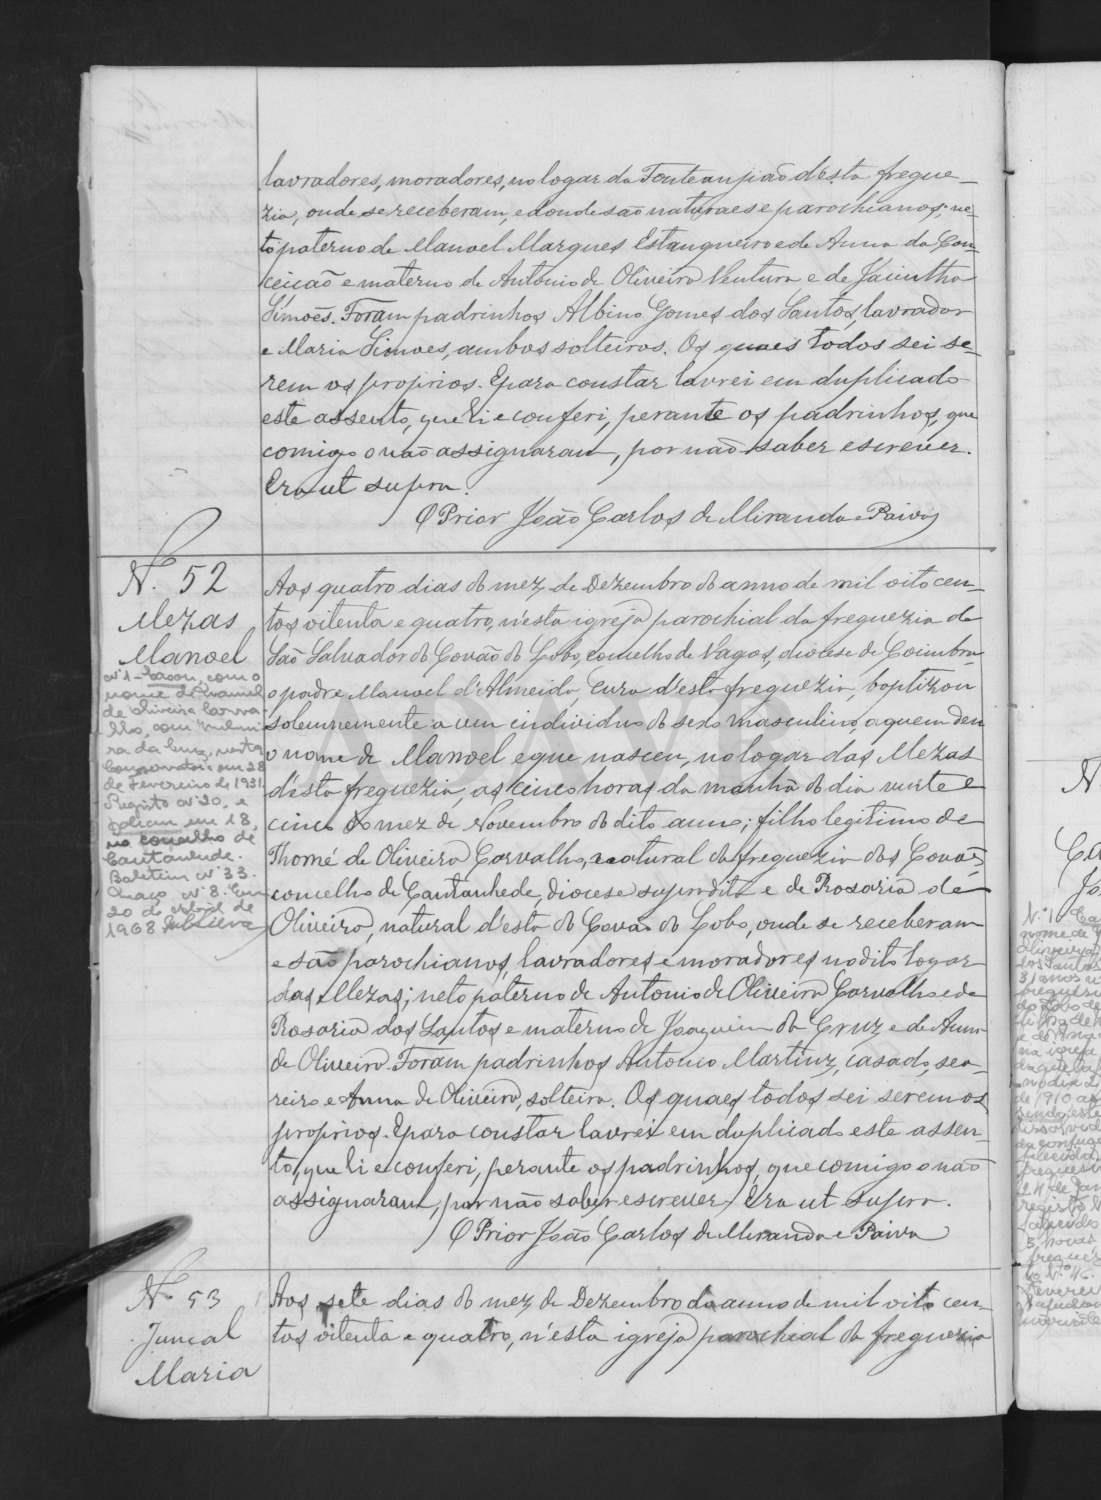 lavradores, moradores, no logar da Fonteanpião d'ésta fregue-
zia, onde se receberam, e donde são naturaes e parochianos; ne-
to paterno de Manoel Marques Estanqueiro e de Anna da Con-
ceição e materno de Antonio de Oliveira Ventura e de Jacintha
Simões. Foram padrinhos Albino Gomes dos Santos, lavrador
e Maria Simoes, ambos solteiros. Os quaes todos sei se-
rem os proprios. E para constar lavrei em duplicado
este assento, que li e conferi, perante os padrinhos, que
comigo o não assignaram, por não saber escrever.
Era ut supra.
O Prior João Carlos de Miranda e Paiva
N.º 52
Mezas
Manoel
Nº 1 - Casou, com o
nome de Manuel
de Oliveira Carva-
lho, com
ra da Cruz, nesta
Conservatoria em 28
de Fevereiro de 1931.
Registo nº 20, e
faleceu em 18,
no concelho de
Cantanhede.
Boletim nº 33.
Maço nº 8. Em
20 de Abril de
1968
Aos quatro dias do mez de Dezembro do anno de mil oito cen-
tos oitenta e quatro, n'ésta igreja parochial da freguezia de
São Salvador do Covão do Lobo, concelho de Vagos, diocese de Coimbra,
o padre Manoel d'Almeida, Cura d'esta freguezia, baptizou
solemnemente a um individuo do sexo masculino, a quem deu
o nome de Manoel e que nasceu, no logar das Mezas
d'ésta freguezia, as cinco horas da manhã do dia vinte e
cinco do mez de Novembro do dito anno; filho legitimo de
Thomé de Oliveira Carvalho, natural da freguezia dos Covões,
concelho de Cantanhede, diocese supradita e de Rosaria de
Oliveira, natural d'esta do Covão do Lobo, onde se receberam
e são parochianos, lavradores e moradores no dito logar
das Mezas; neto paterno de Antonio de Oliveira Carvalho e de
Rosaria dos Santos e materno de Joaquim da Cruz e de Anna
de Oliveira. Foram padrinhos Antonio Martinz, casado, sea-
reiro e Anna de Oliveira, solteira. Os quaes todos sei serem os
proprios. E para constar lavrei em duplicado este assen-
to, que li e conferi, perante os padrinhos, que comigo o não
assignaram, por não saber escrever. Era ut supra.
O Prior João Carlos de Miranda e Paiva
Nº 53
Juncal
Maria
Aos sete dias do mez de Dezembro do anno de mil oito cen-
tos oitenta e quatro, n'ésta igreja parochial da freguezia